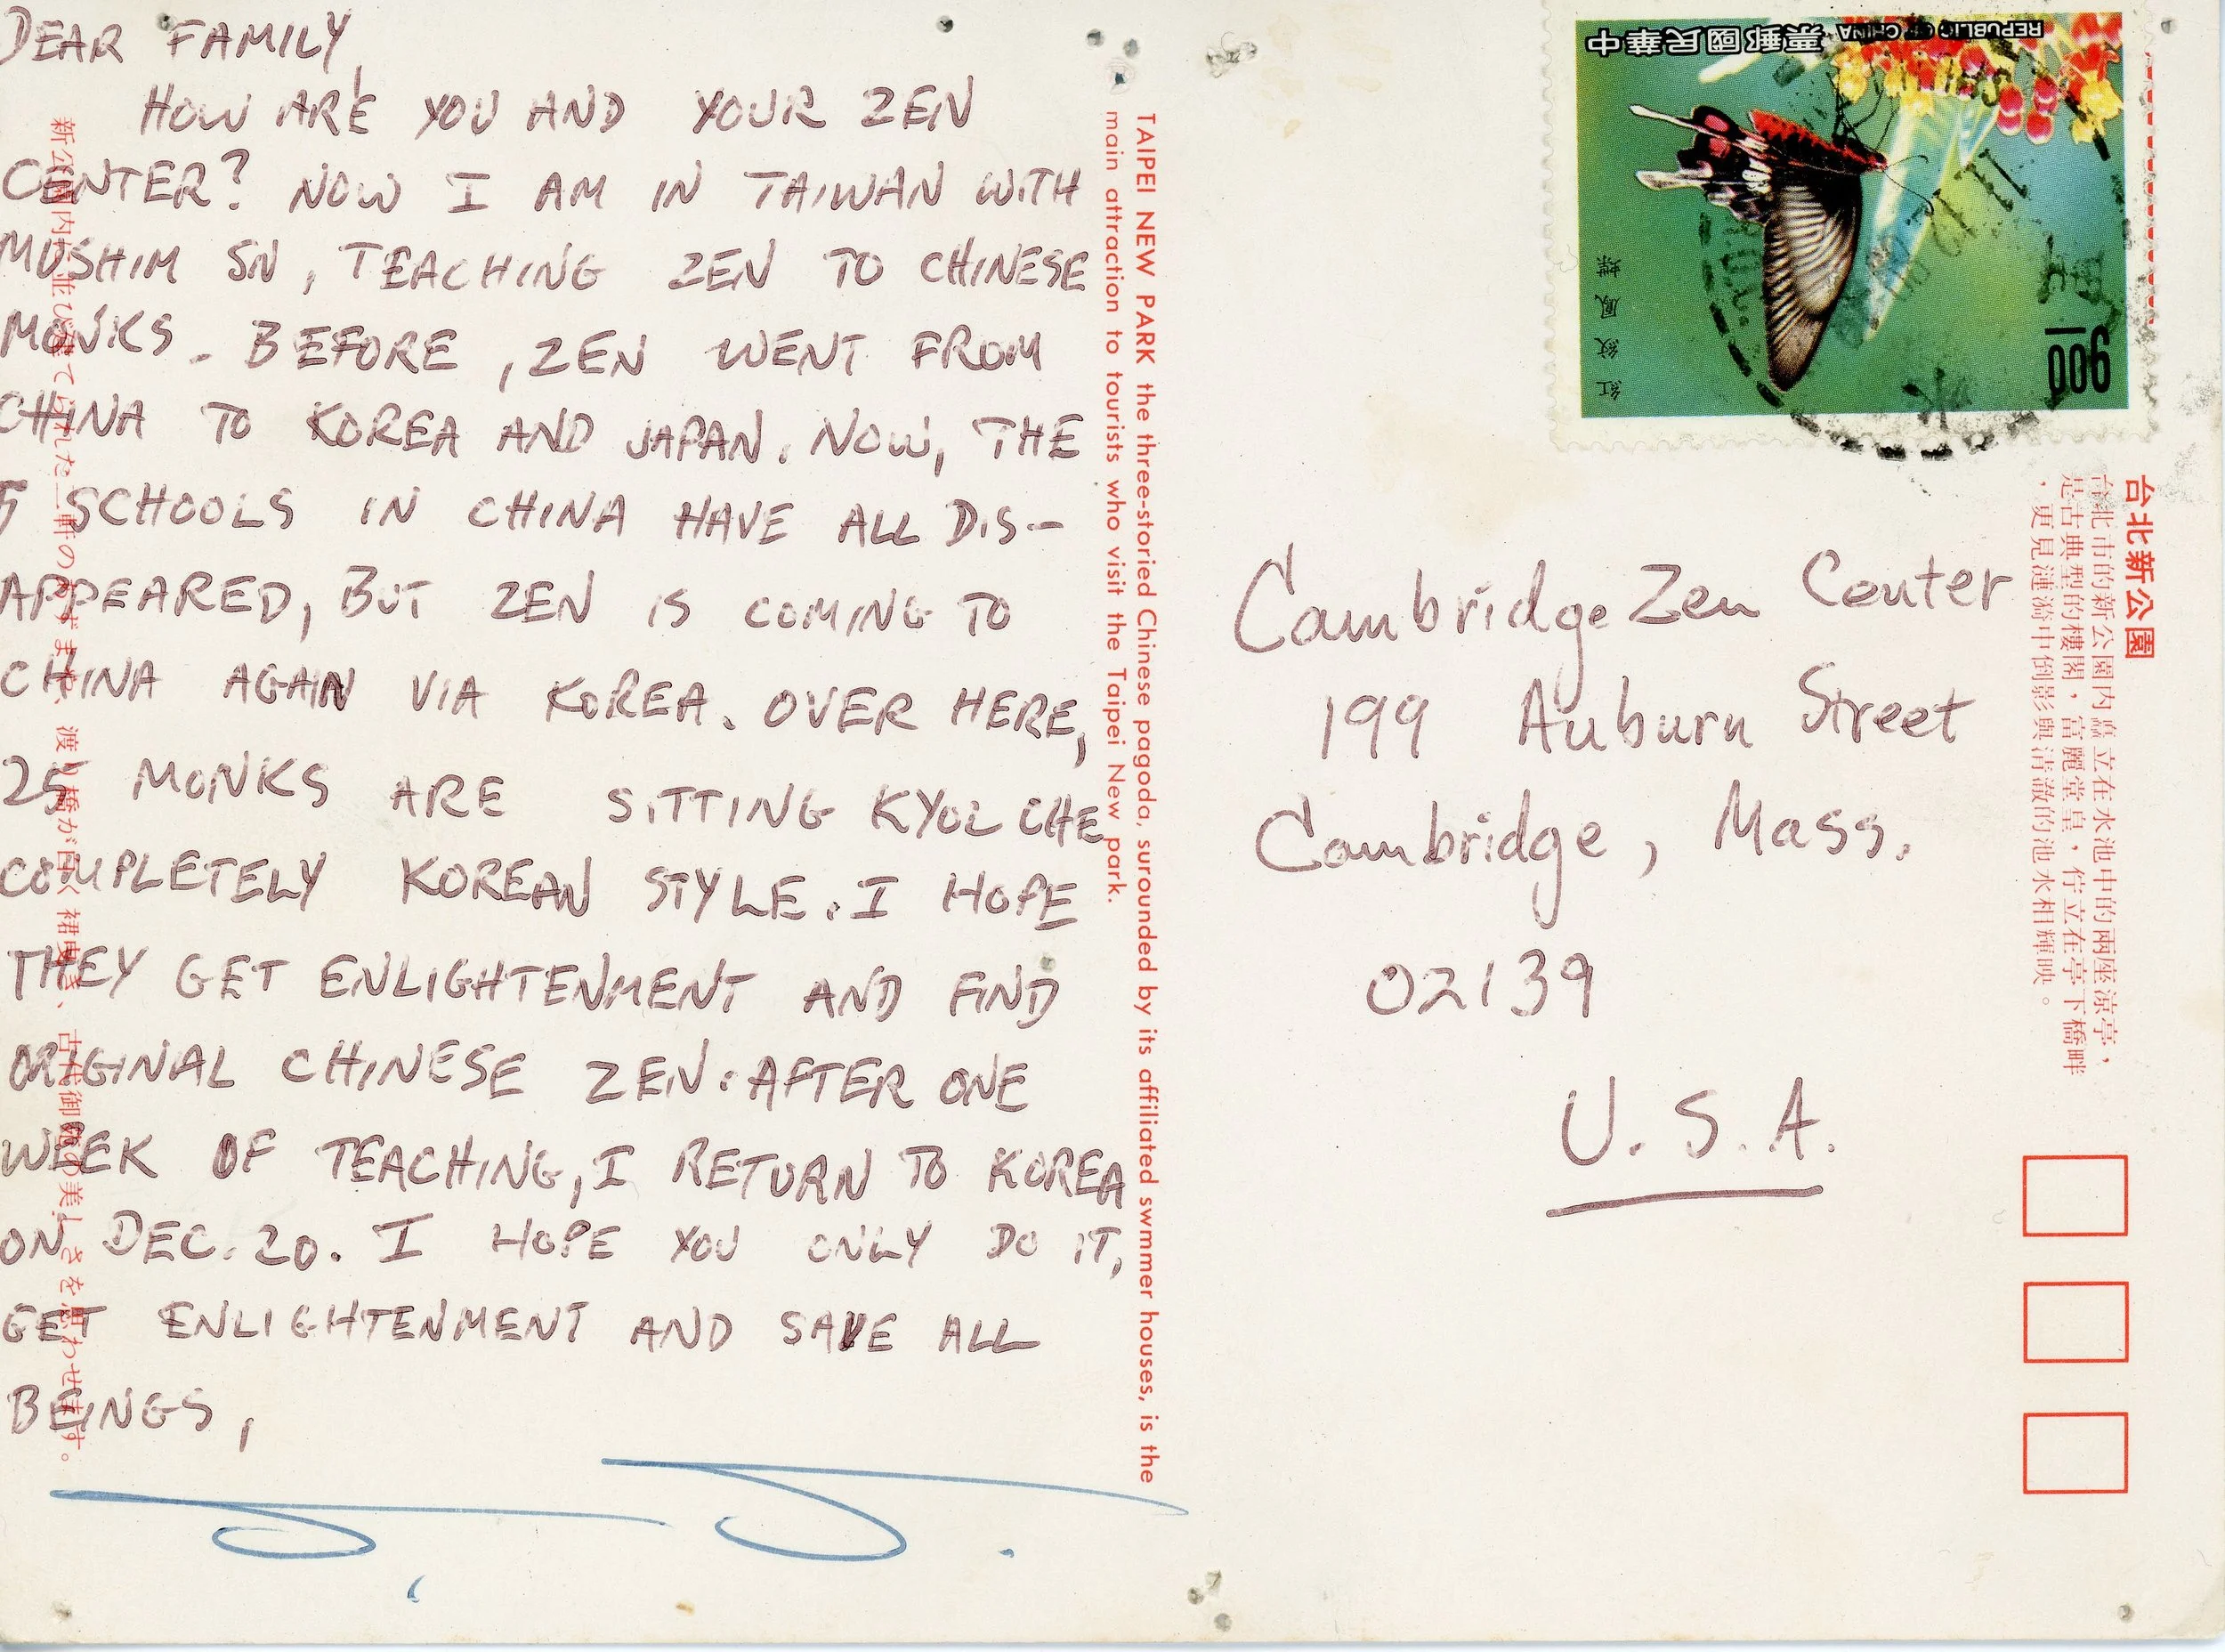 DEAR FAMILY,
HOW ARE YOU AND YOUR ZEN
CENTER? NOW I AM IN TAIWAN WITH
MUSHIM SN, TEACHING ZEN TO CHINESE
MONKS. BEFORE, ZEN WENT FROM
CHINA TO KOREA AND JAPAN. NOW, THE
5 SCHOOLS IN CHINA HAVE ALL DIS-
APPEARED, BUT ZEN IS COMING TO
CHINA AGAIN VIA KOREA. OVER HERE,
25 MONKS ARE SITTING KYOL CHE
COMPLETELY KOREAN STYLE. I HOPE
THEY GET ENLIGHTENMENT AND FIND
ORIGINAL CHINESE ZEN. AFTER ONE
WEEK OF TEACHING, I RETURN TO KOREA
ON DEC. 20. I HOPE YOU ONLY DO IT,
GET ENLIGHTENMENT AND SAVE ALL
BEINGS,
TAIPEI NEW PARK the three-storied Chinese pagoda, surounded by its affiliated swmmer houses, is the
main attraction to tourists who visit the Taipei New park.
中華民國郵票 REPUBLIC OF CHINA
紅紋鳳蝶
900
Cambridge Zen Center
199 Auburn Street
Cambridge, Mass.
02139
U.S.A.
台北新公園
台北市的新公園內矗立在水池中的兩座涼亭，
是古典型的樓閣，富麗堂皇，佇立在亭下橋畔
，更見漣漪中倒影與清澈的池水相輝映。